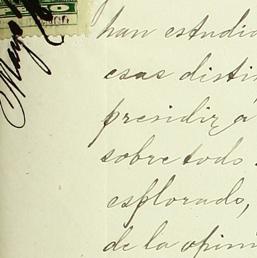 Mayo
han estudia
esas distin
presidirá
sobre todo
esplorado,
de la opini